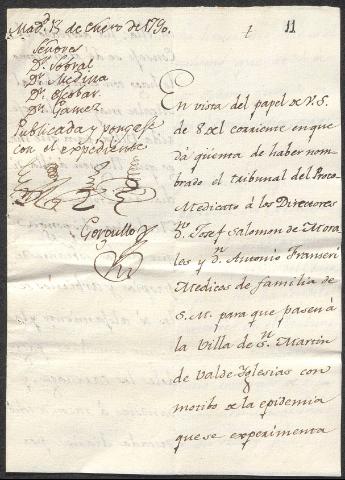 Mad.d 13 de Enero de 1790.
1
11
Señores
Dr. Sobral
Dr. Medina
Dr. Escobar
Dr. Gamez
Publicada y pongase
con el expediente
Gorgullo
En vista del papel de V.S.
de 8 del corriente en que
dá qüenta de haber nom-
brado el tribunal del Proto-
Medicato á los Directores
D.n Josef Salomon de Mora-
les y D.n Antonio Franseri
Medicos de familia de
S.M. para que pasen á
la Villa de S.n Martin
de Valde-Iglesias con
motibo de la epidemia
que se experimenta